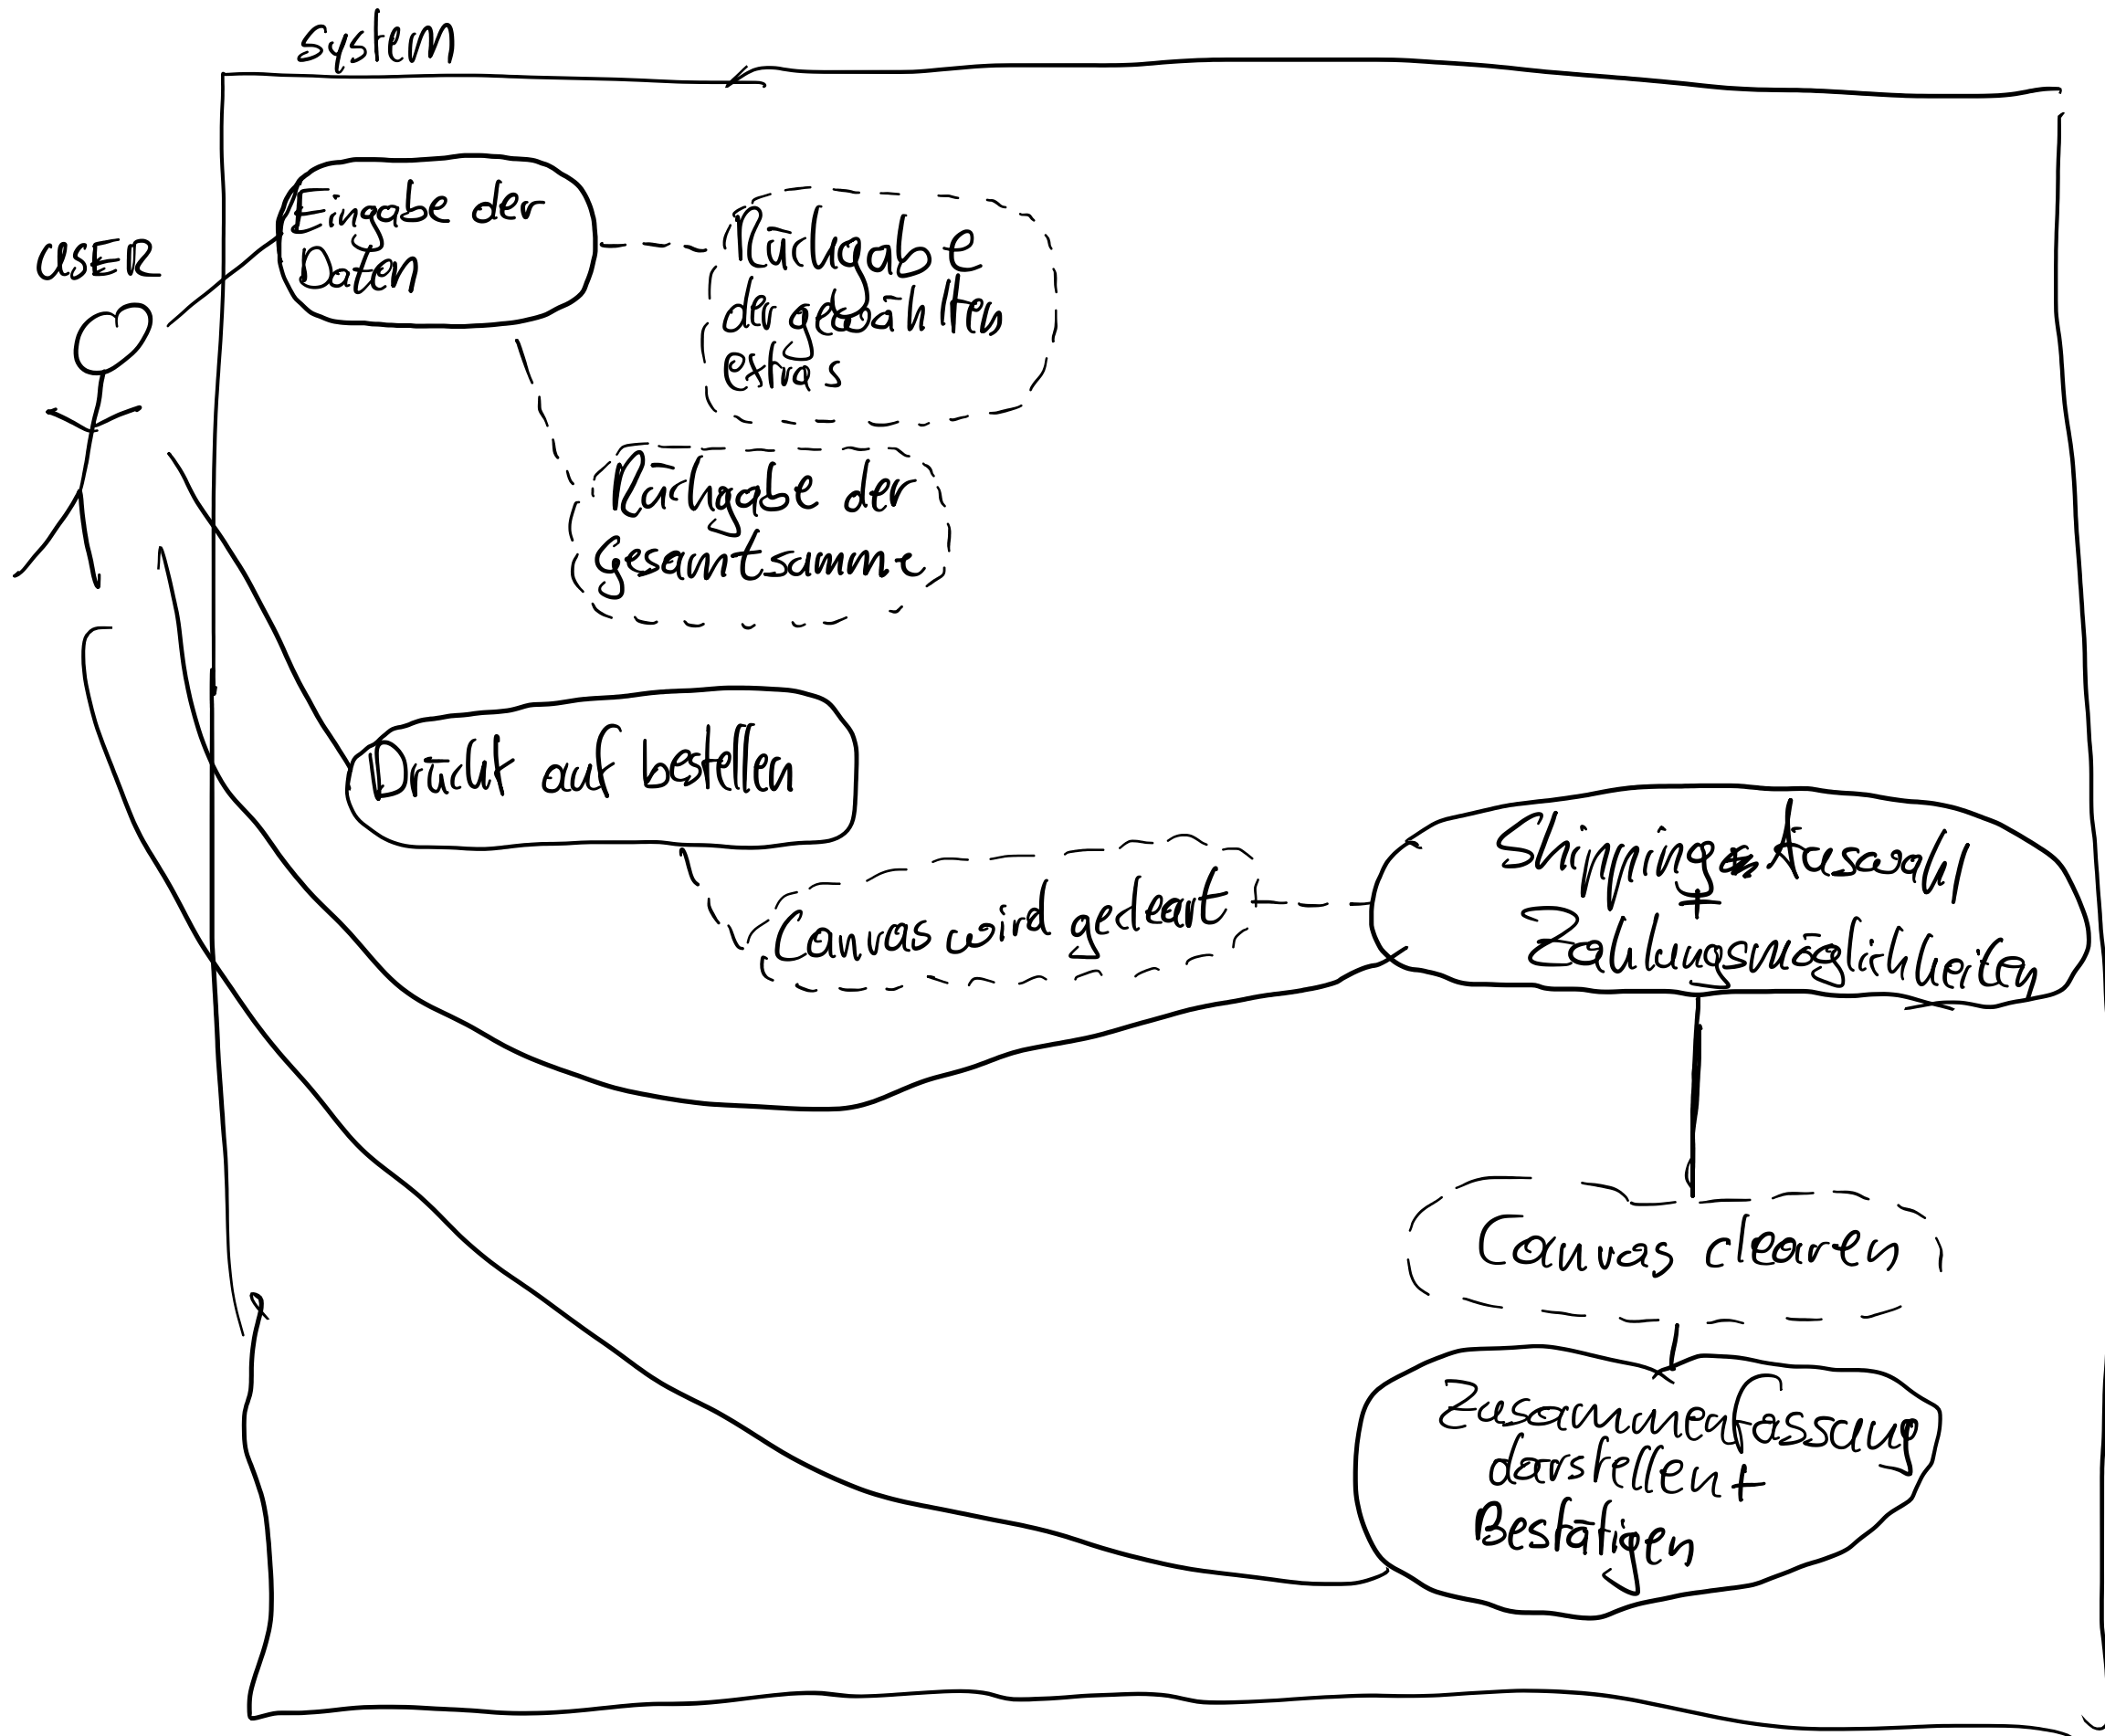 system
USER
Eingabe der
Daten
Rückgabe
der gewählten
extras
Rückgabe der
Gesamtsumme
Drückt auf bestellen
Canvas wird geleart
Shipping Auswahl
+
Zahlungsmöglichkeiten
Canvas clearen
Zusammenfassung
darstellen +
Bestätigen